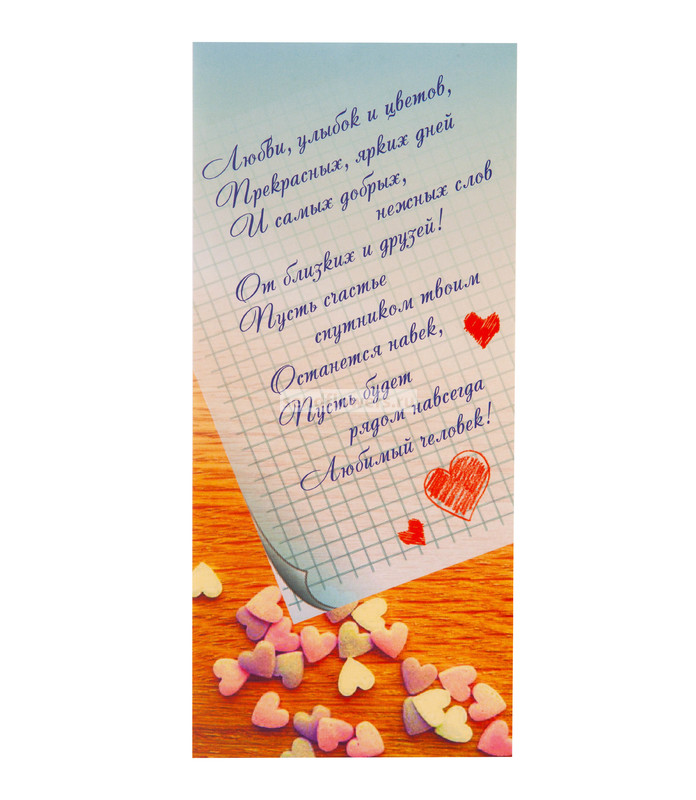 Любви, улыбок и цветов,
Прекрасных, ярких дней
И самых добрых,
нежных слов
От близких и друзей!
Пусть счастье
спутником твоим
Останется навек,
Пусть будет
рядом навсегда
Любимый человек!